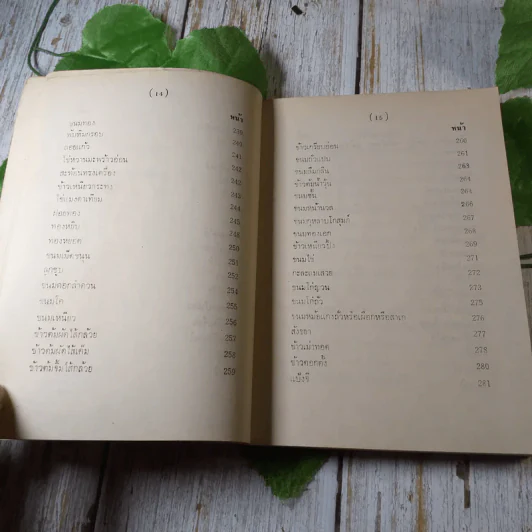 (14)
หน้า
ขนมทอง
กลอยแก้ว 241
ไข่หวานมะพร้าวอ่อน 241
สะบันงาทรงเครื่อง 242
ข้าวเหนียวกระทง 243
ไข่แมงดาเทียม 244
ฝอยทอง 245
ทองหยิบ 246
ทองหยอด 250
ขนมเม็ดขนุน 251
ลูกชุบ 252
ขนมดอกลำดวน 254
ขนมโค 255
ขนมเหนียว 256
ข้าวต้มผัดไส้กล้วย 257
ข้าวต้มผัดไส้เค็ม 258
ข้าวต้มจิ้มไส้กล้วย 259
(15)
หน้า
ข้าวเกรียบอ่อน 260
ขนมถั่วแปบ 261
ขนมกลีบลำดวน 263
ข้าวต้มน้ำวุ้น 264
ขนมชั้น 264
ขนมหน้านวล 266
ขนมกุหลาบโกสุมภ์ 267
ขนมทองเอก 268
ข้าวเหนียวปิ้ง 269
ขนมไข่ 271
กะละแมเสวย 272
ขนมไข่ญวน 273
ขนมไข่ถั่ว 275
ขนมหม้อแกงถั่วหรือเผือกหรือสาเก 276
สังขยา 277
ข้าวเม่าทอด 278
ข้าวตอกตั้ง 280
แป้งจี่ 281